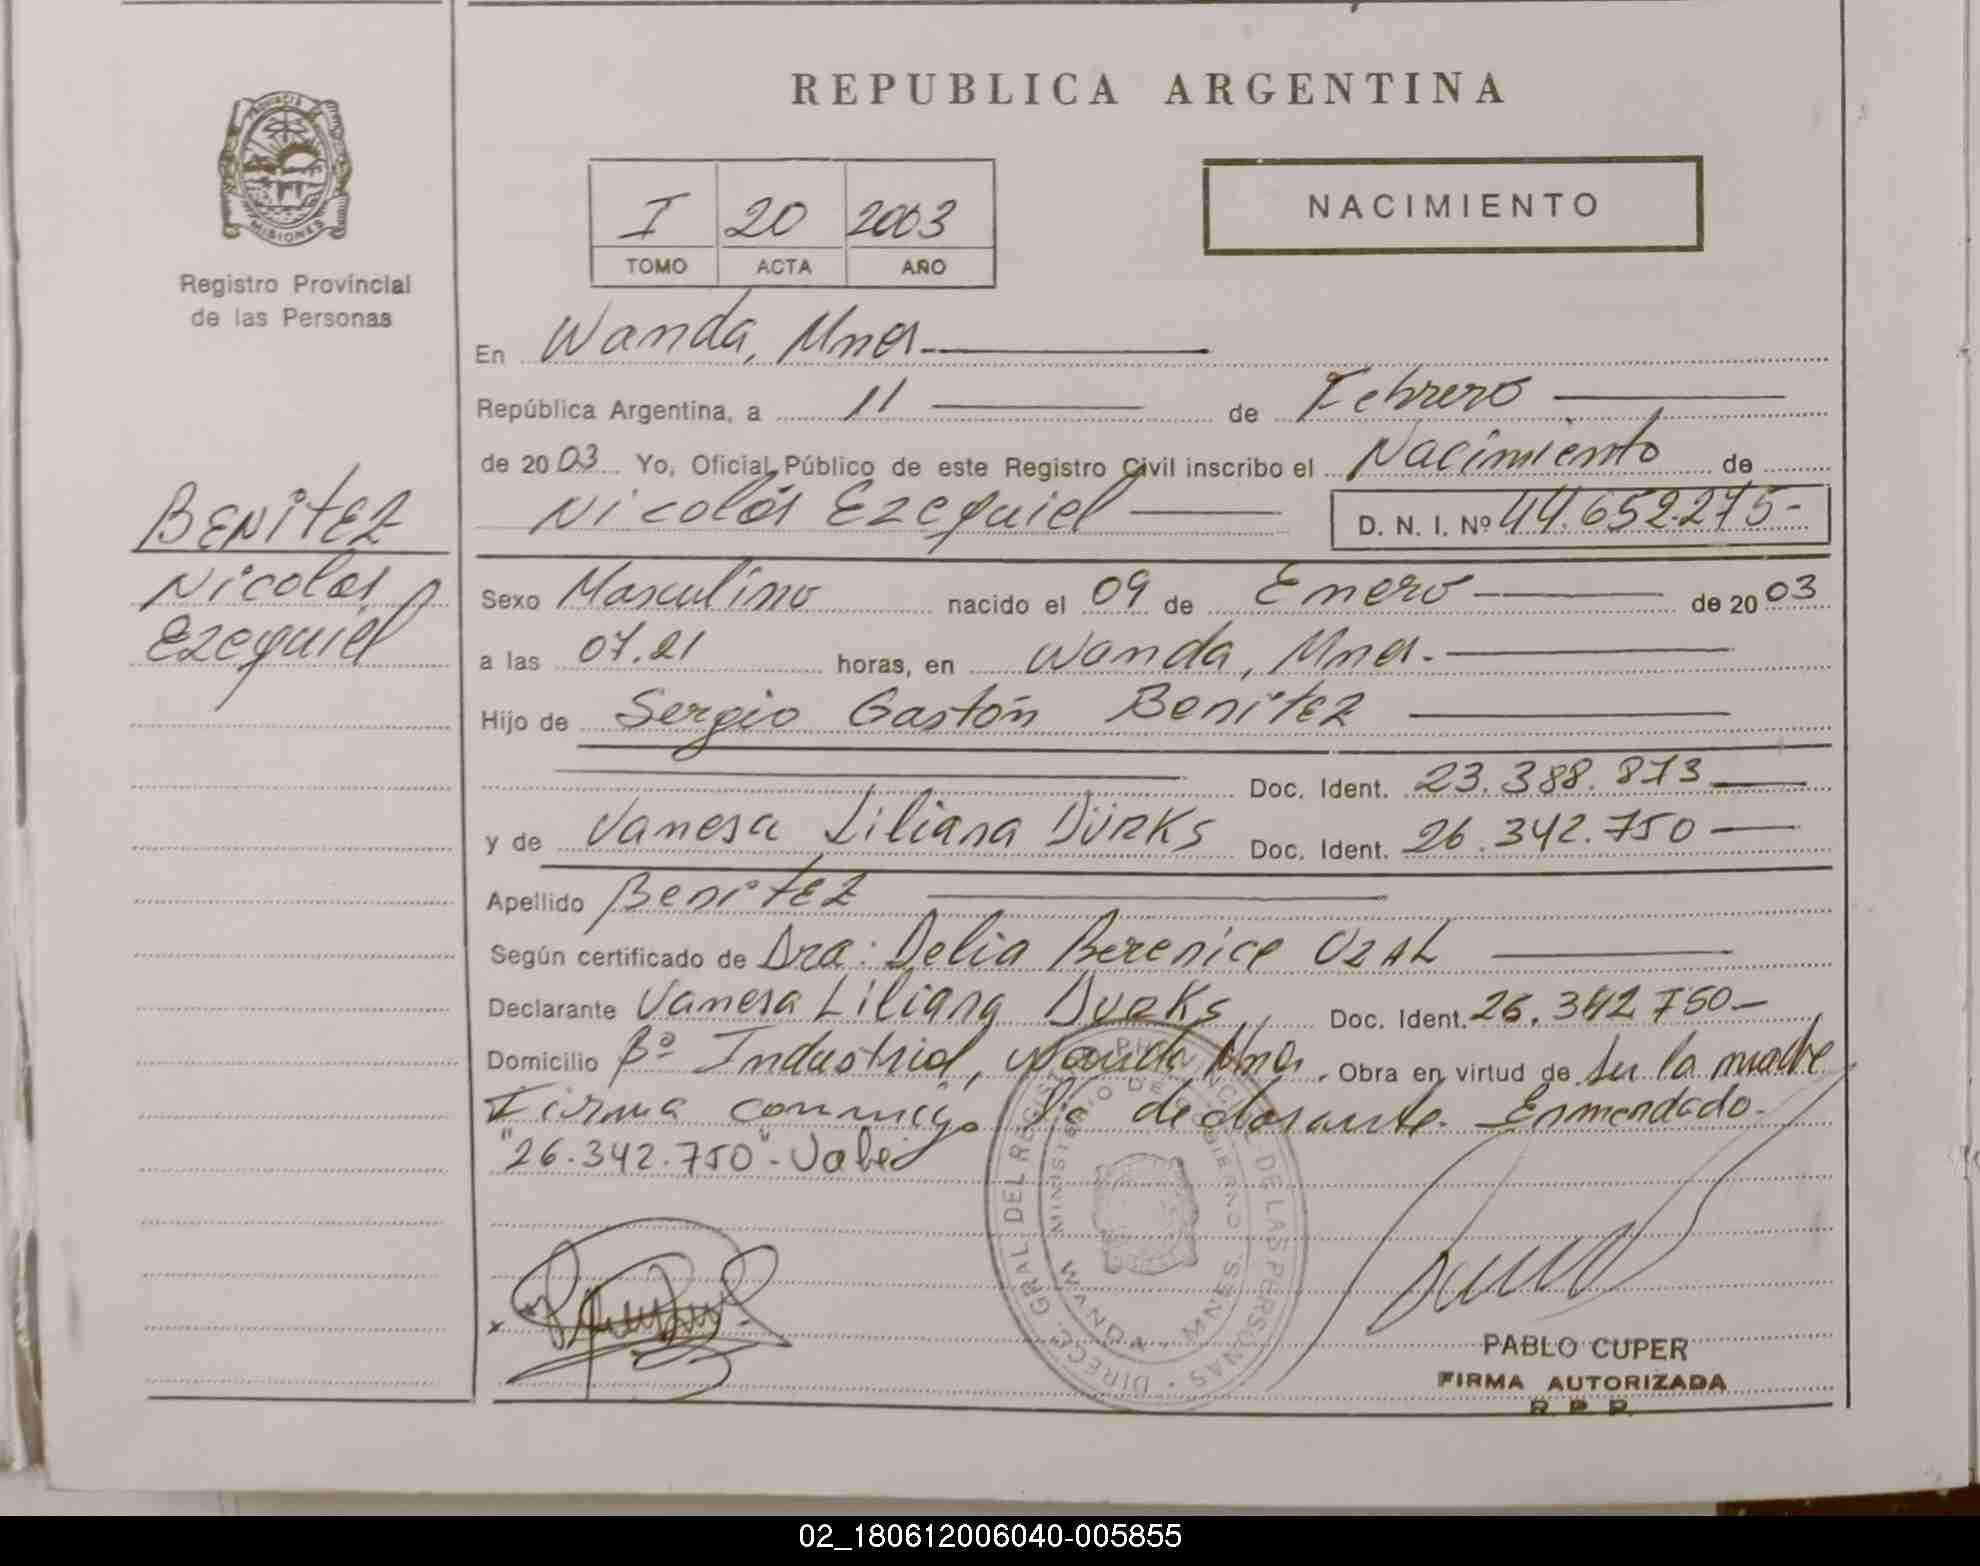 REPUBLICA ARGENTINA
PROVINCIA DE MISIONES
Registro Provincial
de las Personas
I 20 2003
TOMO ACTA AÑO
NACIMIENTO
En Wanda, Mnes.
República Argentina, a 11 de Febrero
de 2003 Yo, Oficial Público de este Registro Civil inscribo el Nacimiento de
Nicolás Ezequiel D. N. I. Nº 44.652.275-
BENITEZ
Nicolás
Ezequiel
Sexo Masculino nacido el 09 de Enero de 2003
a las 07.21 horas, en Wanda, Mnes.
Hijo de Sergio Gastón Benitez
Doc. Ident. 23.388.873
y de Vanesa Liliana Dürks Doc. Ident. 26.342.750
Apellido Benitez
Según certificado de Dra. Delia Berenice Uzal
Declarante Vanesa Liliana Durks Doc. Ident. 26.342.750-
Domicilio Bº Industrial, Wanda Mnes. Obra en virtud de ser la madre
Firma conmigo la declarante. Enmendado.
"26.342.750"- Vale
DIRECC. GRAL. DEL REGISTRO PROVINCIAL DE LAS PERSONAS
MINISTERIO DE GOBIERNO
WANDA MNES.
PABLO CUPER
FIRMA AUTORIZADA
R. P. P.
02_180612006040-005855